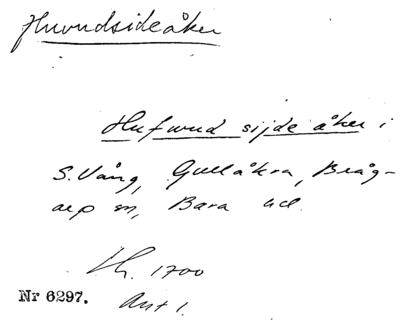 Huvudsideåker
Hufwud sijde åker i
S. Vång, Gullåkra, Bråg-
arp sn, Bara hd.
Lh. 1700
Nr 6297. Akt 1.